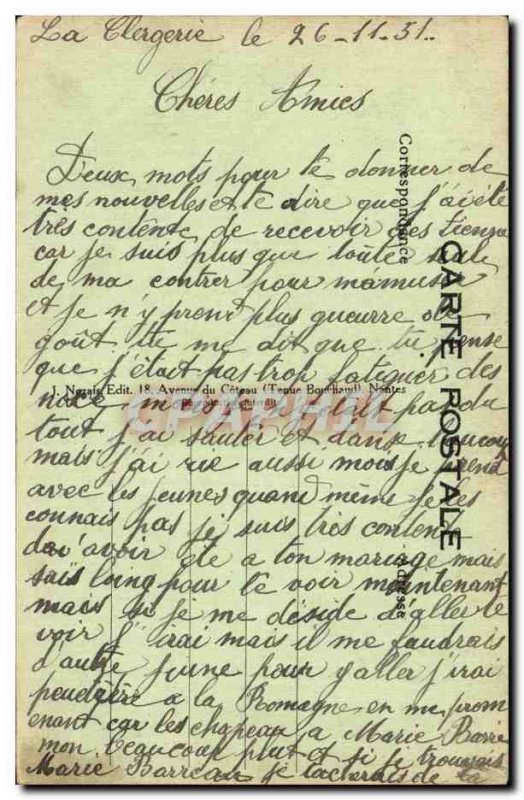 La Clergerie le 26-11-31.
Chéres Amies
Deux mots pour te donner de
mes nouvelles et te dire que j'ai été
très contente de recevoir des tienne
car je suis plus que toute seule
de ma contrer pour mamuser
et je n'y prend plus gueurre de
goût tu me dit que tu pense
que j'était pas trop fatiguer des
noce mais dit pas du
tout j'ai sauter et danser beaucoup
mais j'ai rie aussi mais je prend
avec les jeunes quand même je les
connais pas je suis très contente
d'avoir été a ton mariage mais
sais loing pour te voir maintenant
mais si je me décide d'aller te
voir j'irai mais il me faudrais
d'autre jeune pour y aller j'irai
peudetre a la Romagne en me prom
enant car les chapeau a Marie Barre
mon beaucoup plut et si je trouvais
Marie Barreau je tacherais de la
Correspondance
CARTE POSTALE
Adresse
J. Nozais Edit. 18, Avenue du Côteau (Tenue Bouchaud), Nantes
CPAPHIL